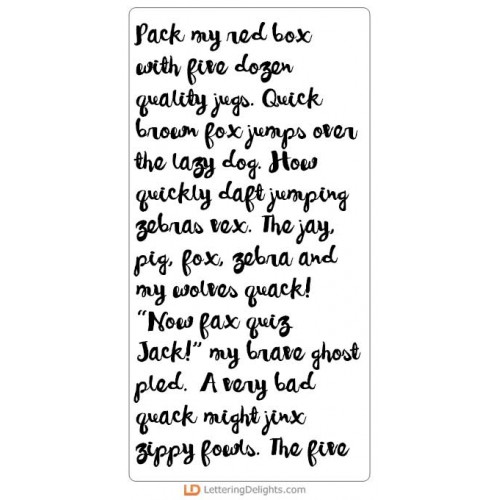 Pack my red box
with five dozen
quality jugs. Quick
brown fox jumps over
the lazy dog. How
quickly daft jumping
zebras vex. The jay,
pig, fox, zebra and
my wolves quack!
“Now fax quiz
Jack!” my brave ghost
pled. A very bad
quack might jinx
zippy fowls. The five
LD LetteringDelights.com